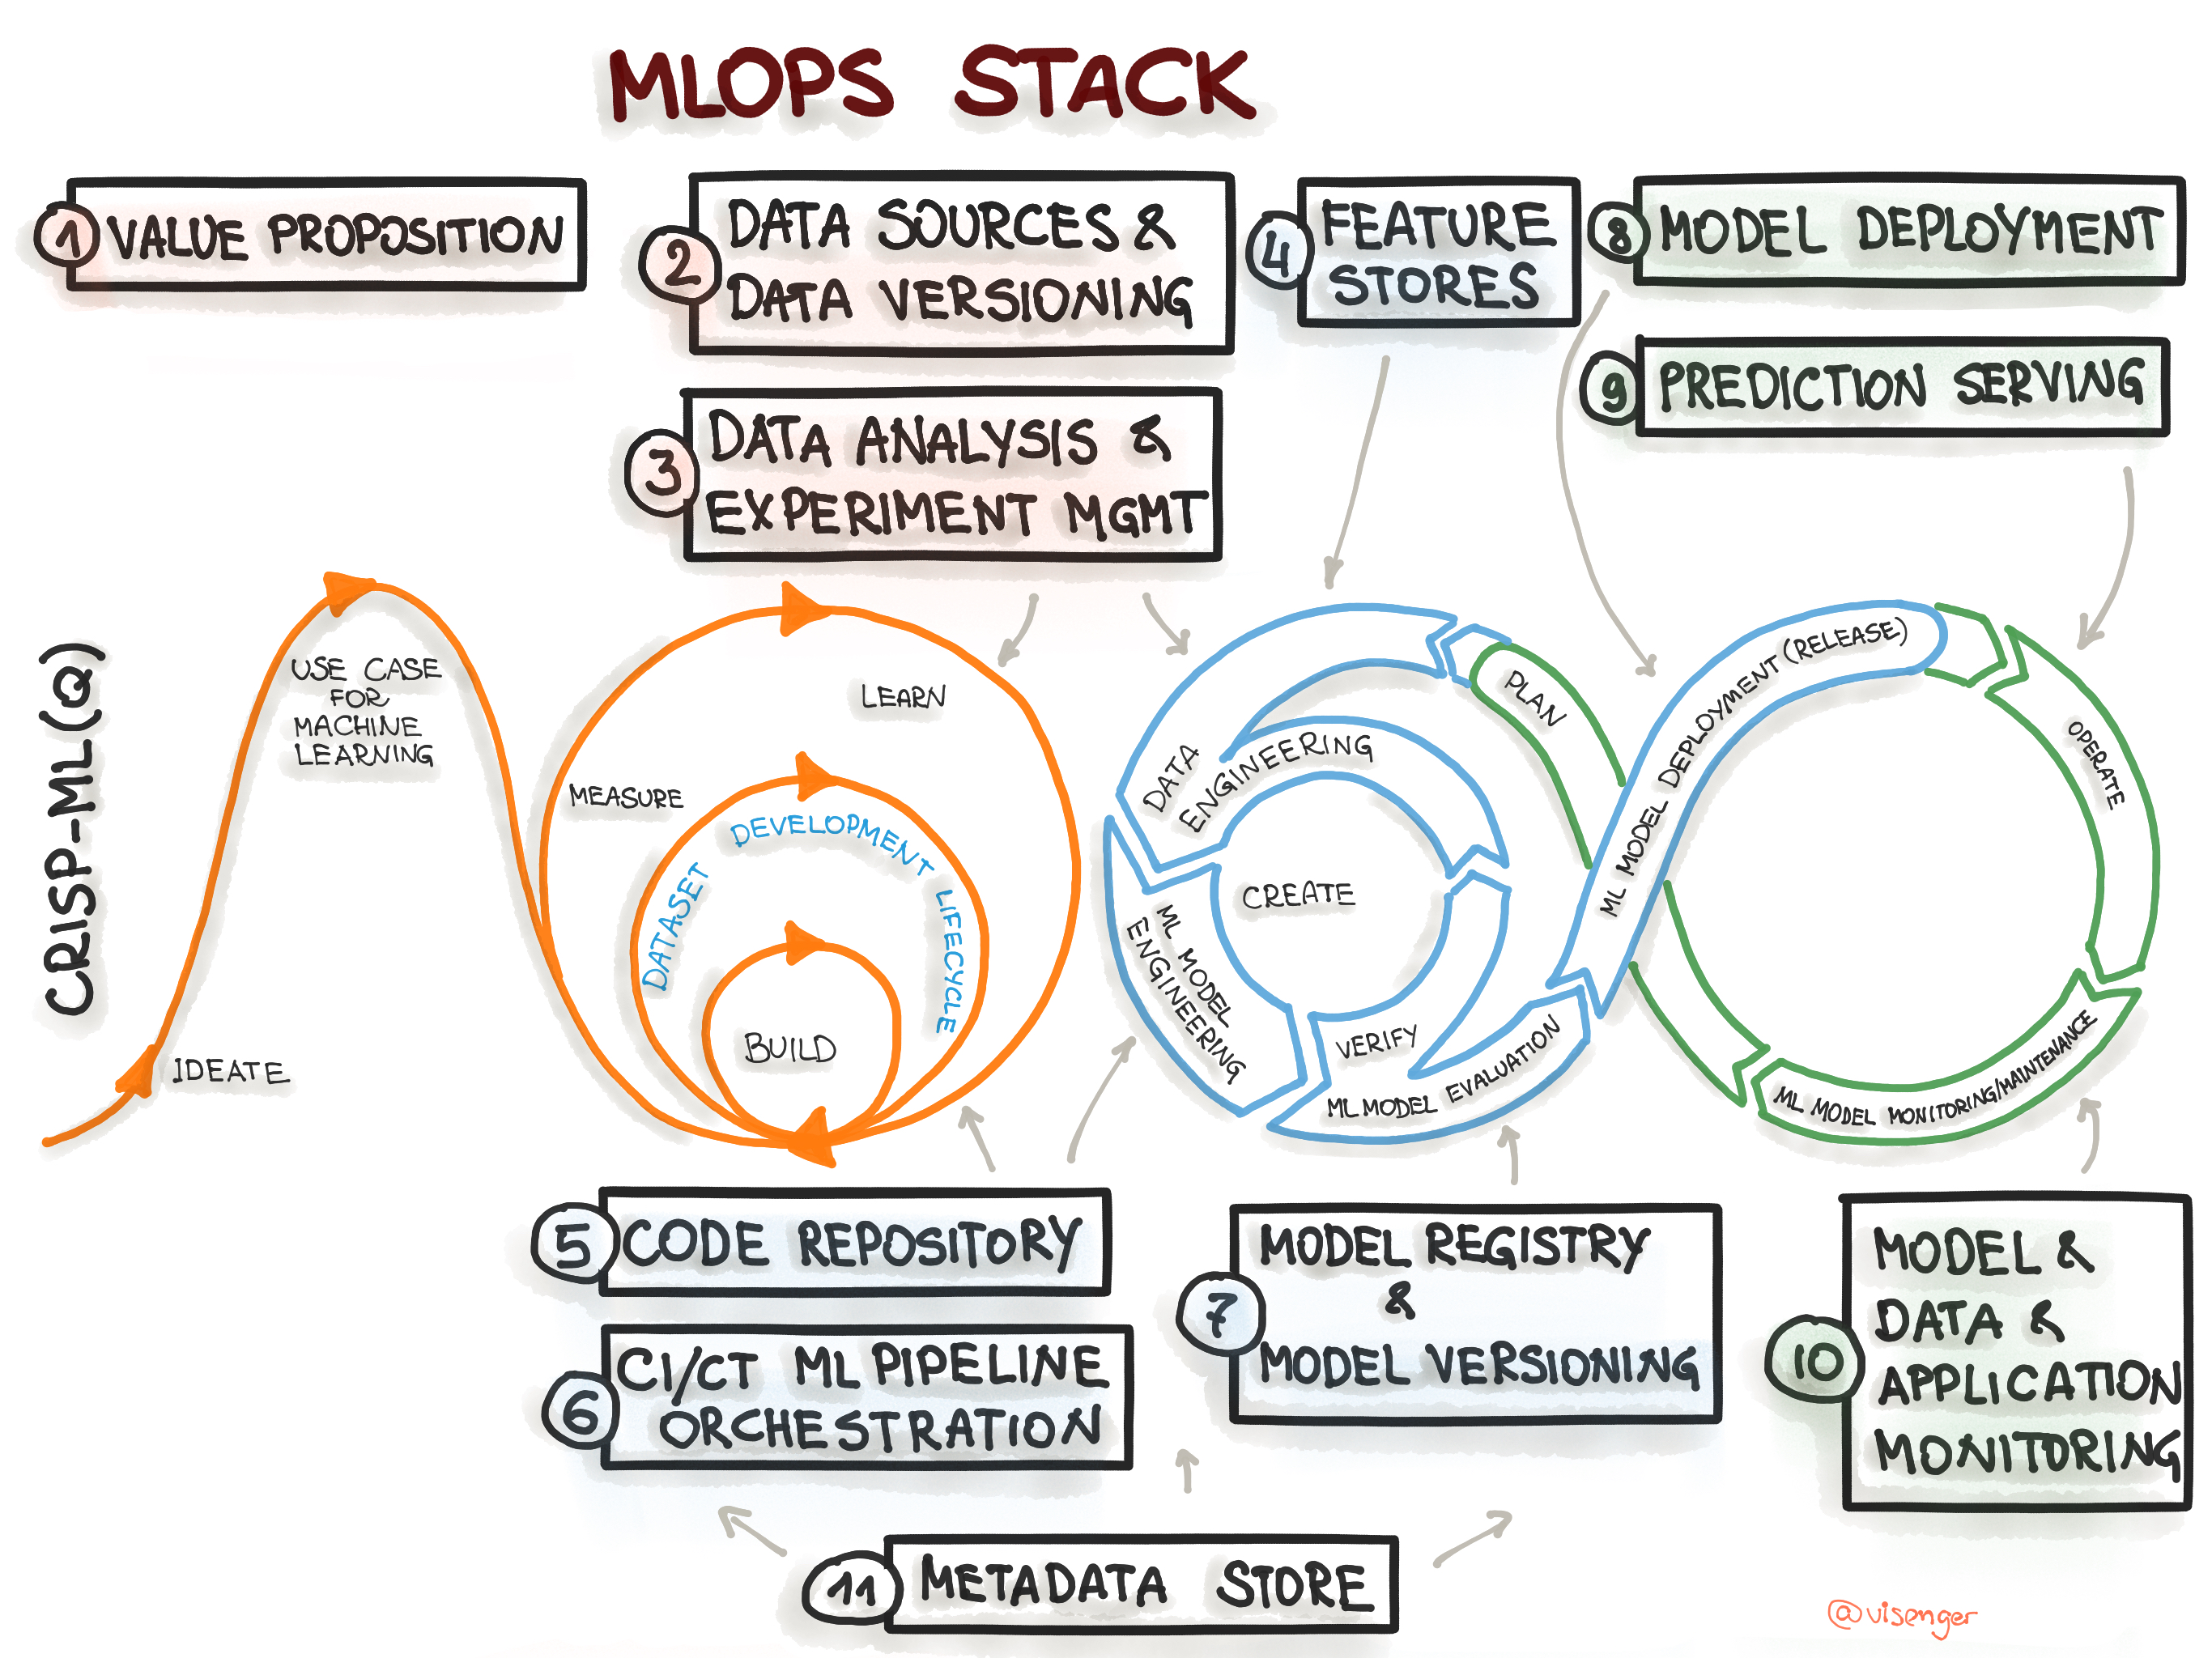 MLOPS STACK
1 VALUE PROPOSITION
2 DATA SOURCES &
DATA VERSIONING
3 DATA ANALYSIS &
EXPERIMENT MGMT
4 FEATURE
STORES
8 MODEL DEPLOYMENT
9 PREDICTION SERVING
CRISP-ML(Q)
IDEATE
USE CASE
FOR
MACHINE
LEARNING
MEASURE
LEARN
DATASET DEVELOPMENT LIFECYCLE
BUILD
DATA
ENGINEERING
PLAN
CREATE
ML MODEL
ENGINEERING
VERIFY
ML MODEL EVALUATION
ML MODEL DEPLOYMENT (RELEASE)
OPERATE
ML MODEL MONITORING/MAINTENANCE
5 CODE REPOSITORY
6 CI/CT ML PIPELINE
ORCHESTRATION
7 MODEL REGISTRY
&
MODEL VERSIONING
10 MODEL &
DATA &
APPLICATION
MONITORING
11 METADATA STORE
@visenger